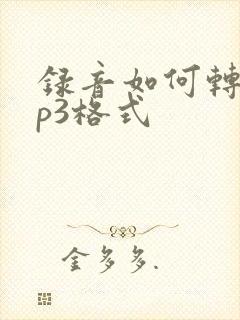 錄音如何轉
p3格式
金多多.